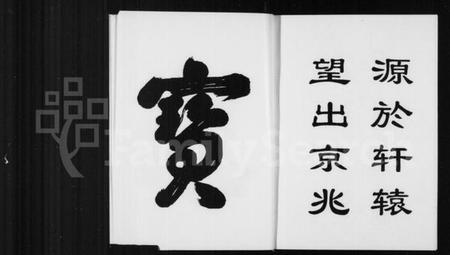 源於轩辕
望出京兆
寶
FamilySearch